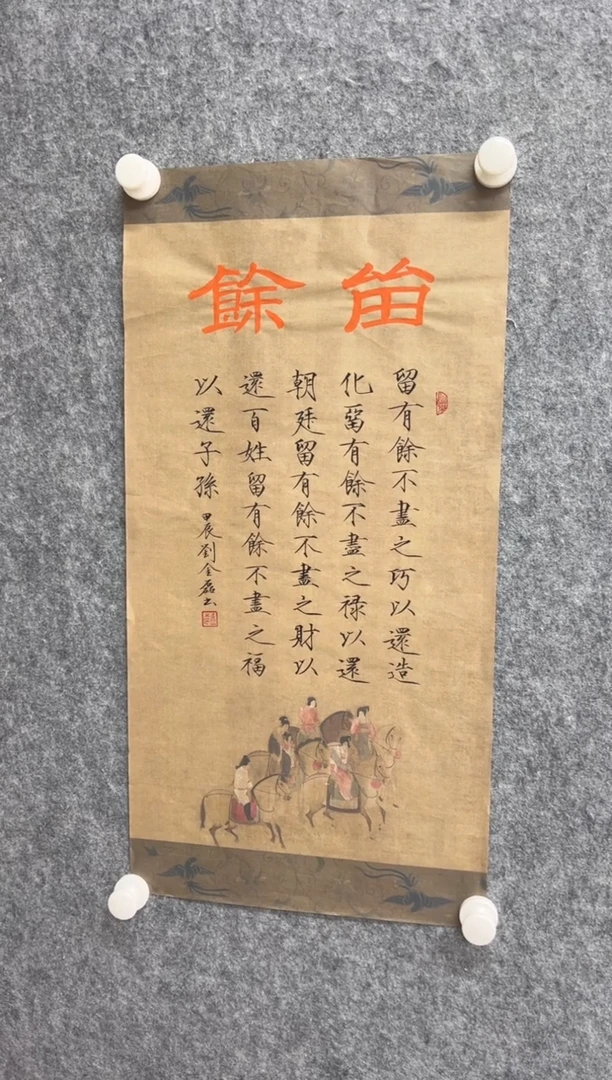 留餘
留有餘不盡之巧以還造
化留有餘不盡之禄以還
朝廷留有餘不盡之財以
還百姓留有餘不盡之福
以還子孫
甲辰劉金磊書